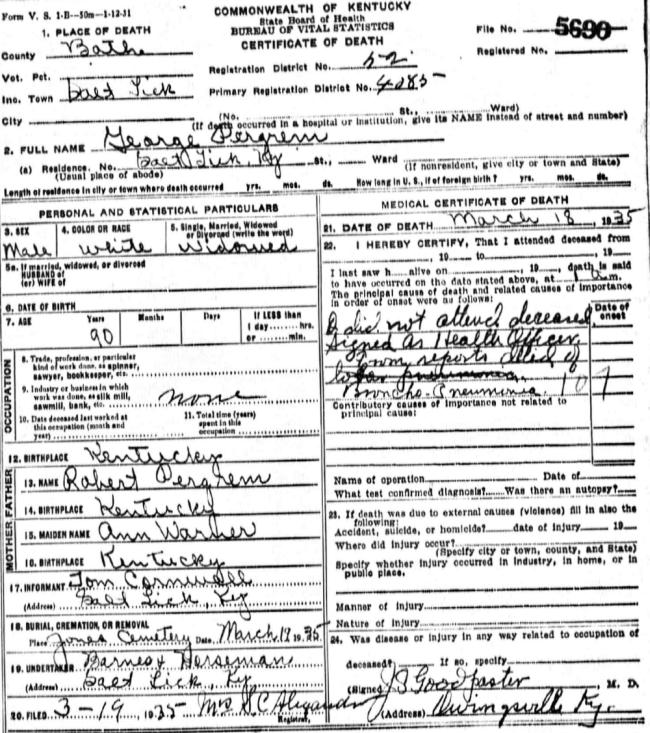 Form V. S. 1-B—50m—1-12-31
COMMONWEALTH OF KENTUCKY
State Board of Health
BUREAU OF VITAL STATISTICS
CERTIFICATE OF DEATH
File No. 5690
Registered No.
1. PLACE OF DEATH
County Bath
Vot. Pct.
Inc. Town Salt Lick
City
Registration District No. 52
Primary Registration District No. 4085
(No. St., Ward)
(If death occurred in a hospital or institution, give its NAME instead of street and number)
2. FULL NAME George Pergrem
(a) Residence. No. Salt Lick, Ky St., Ward
(Usual place of abode) (If nonresident, give city or town and State)
Length of residence in city or town where death occurred yrs. mos. ds. How long in U. S., if of foreign birth? yrs. mos. ds.
PERSONAL AND STATISTICAL PARTICULARS
3. SEX
Male
4. COLOR OR RACE
White
5. Single, Married, Widowed
or Divorced (write the word)
Widowed
5a. If married, widowed, or divorced
HUSBAND of
(or) WIFE of
6. DATE OF BIRTH
7. AGE Years Months Days If LESS than
1 day hrs.
or min.
90
OCCUPATION
8. Trade, profession, or particular
kind of work done, as spinner,
sawyer, bookkeeper, etc.
9. Industry or business in which
work was done, as silk mill,
sawmill, bank, etc. none
10. Date deceased last worked at
this occupation (month and
year)
11. Total time (years)
spent in this
occupation
12. BIRTHPLACE Kentucky
FATHER
13. NAME Robert Pergrem
14. BIRTHPLACE Kentucky
MOTHER
15. MAIDEN NAME Ann Warner
16. BIRTHPLACE Kentucky
17. INFORMANT Tom Cornwell
(Address) Salt Lick, Ky
18. BURIAL, CREMATION, OR REMOVAL
Place Jones Cemetery Date March 19 1935
19. UNDERTAKER Barnes & Horseman
(Address) Salt Lick, Ky
20. FILED 3-19 1935 Mrs S C Alexander
Registrar.
MEDICAL CERTIFICATE OF DEATH
21. DATE OF DEATH March 18, 1935
22. I HEREBY CERTIFY, That I attended deceased from
, 19 to , 19
I last saw h alive on , 19 , death is said
to have occurred on the date stated above, at 1 a.m.
The principal cause of death and related causes of importance
in order of onset were as follows:
Date of
onset
I did not attend deceased
Signed as Health Officer
From reports died of
lobar pneumonia
Broncho-Pneumonia 107
Contributory causes of importance not related to
principal cause:
Name of operation Date of
What test confirmed diagnosis? Was there an autopsy?
23. If death was due to external causes (violence) fill in also the
following:
Accident, suicide, or homicide? date of injury 19
Where did injury occur?
(Specify city or town, county, and State)
Specify whether injury occurred in industry, in home, or in
public place.
Manner of injury
Nature of injury
24. Was disease or injury in any way related to occupation of
deceased? If so, specify
(Signed J S Goodpaster M. D.
(Address) Owingsville Ky.